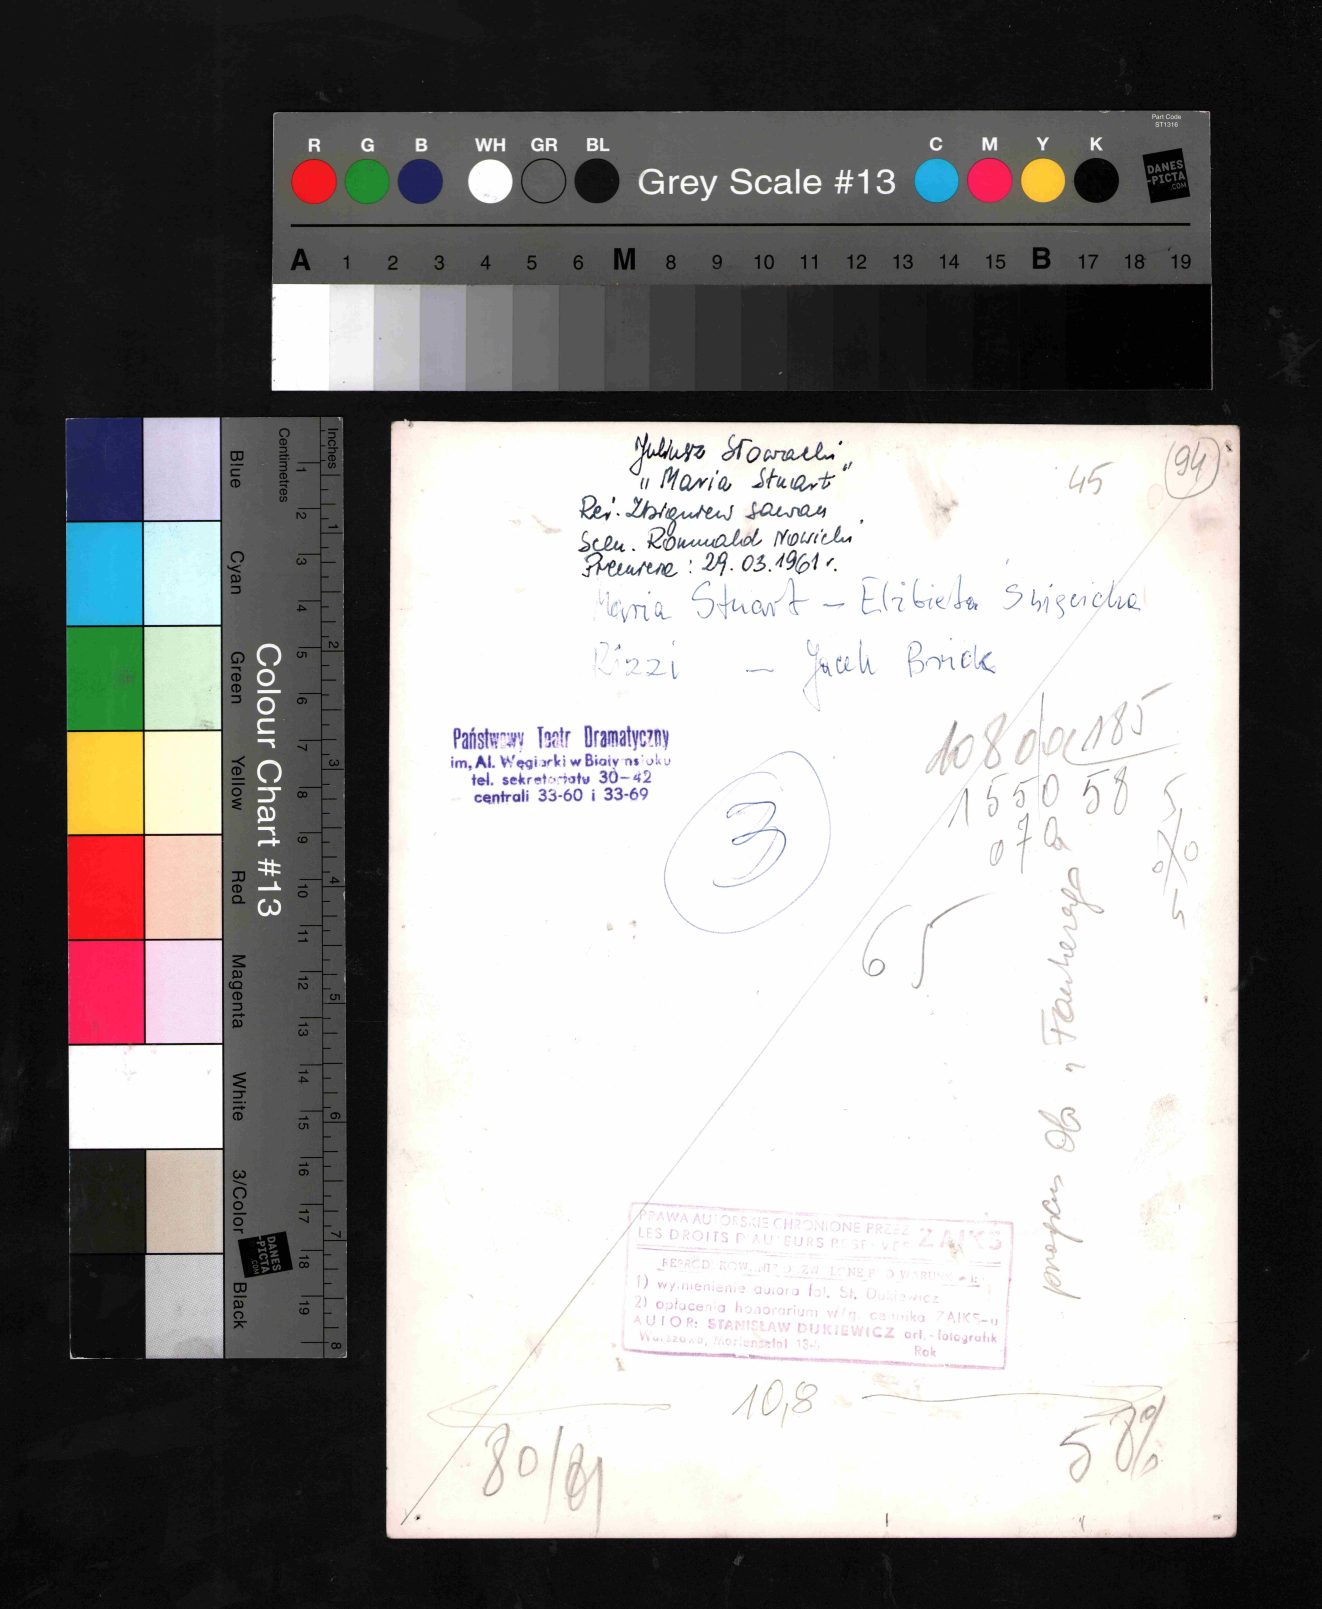 Part Code
ST1316
R G B WH GR BL Grey Scale #13 C M Y K
DANES
-PICTA
.COM
A 1 2 3 4 5 6 M 8 9 10 11 12 13 14 15 B 17 18 19
Colour Chart #13
Blue
Cyan
Green
Yellow
Red
Magenta
White
3/Color
Black
Centimetres
1 2 3 4 5 6 7 8 9 10 11 12 13 14 15 16 17 18 19
Inches
1 2 3 4 5 6 7 8
DANES
-PICTA
.COM
Juliusz Słowacki
"Maria Stuart"
Reż. Zbigniew Sawan
Scen. Romuald Nowicki
Premiera: 29.03.1961 r.
45
94
Maria Stuart – Elżbieta Śnigeicka
Rizzi – Jacek Brick
Państwowy Teatr Dramatyczny
im, Al. Węgierki w Białymstoku
tel. sekretariatu 30-42
centrali 33-60 i 33-69
3
1080 185
1550 58
070
5
0 0
5
65
program
PRAWA AUTORSKIE CHRONIONE PRZEZ ZAIKS
LES DROITS D'AUTEURS RESERVES
REPRODUKOWANIE DOZWOLONE POD WARUNKIEM
1) wymienienie autora fot. St. Dukiewicz
2) opłacenia honorarium w/g. cennika ZAIKS-u
AUTOR: STANISŁAW DUKIEWICZ art.-fotografik
Warszawa, Mariensztat 13-
Rok
10,8
80/81
58%